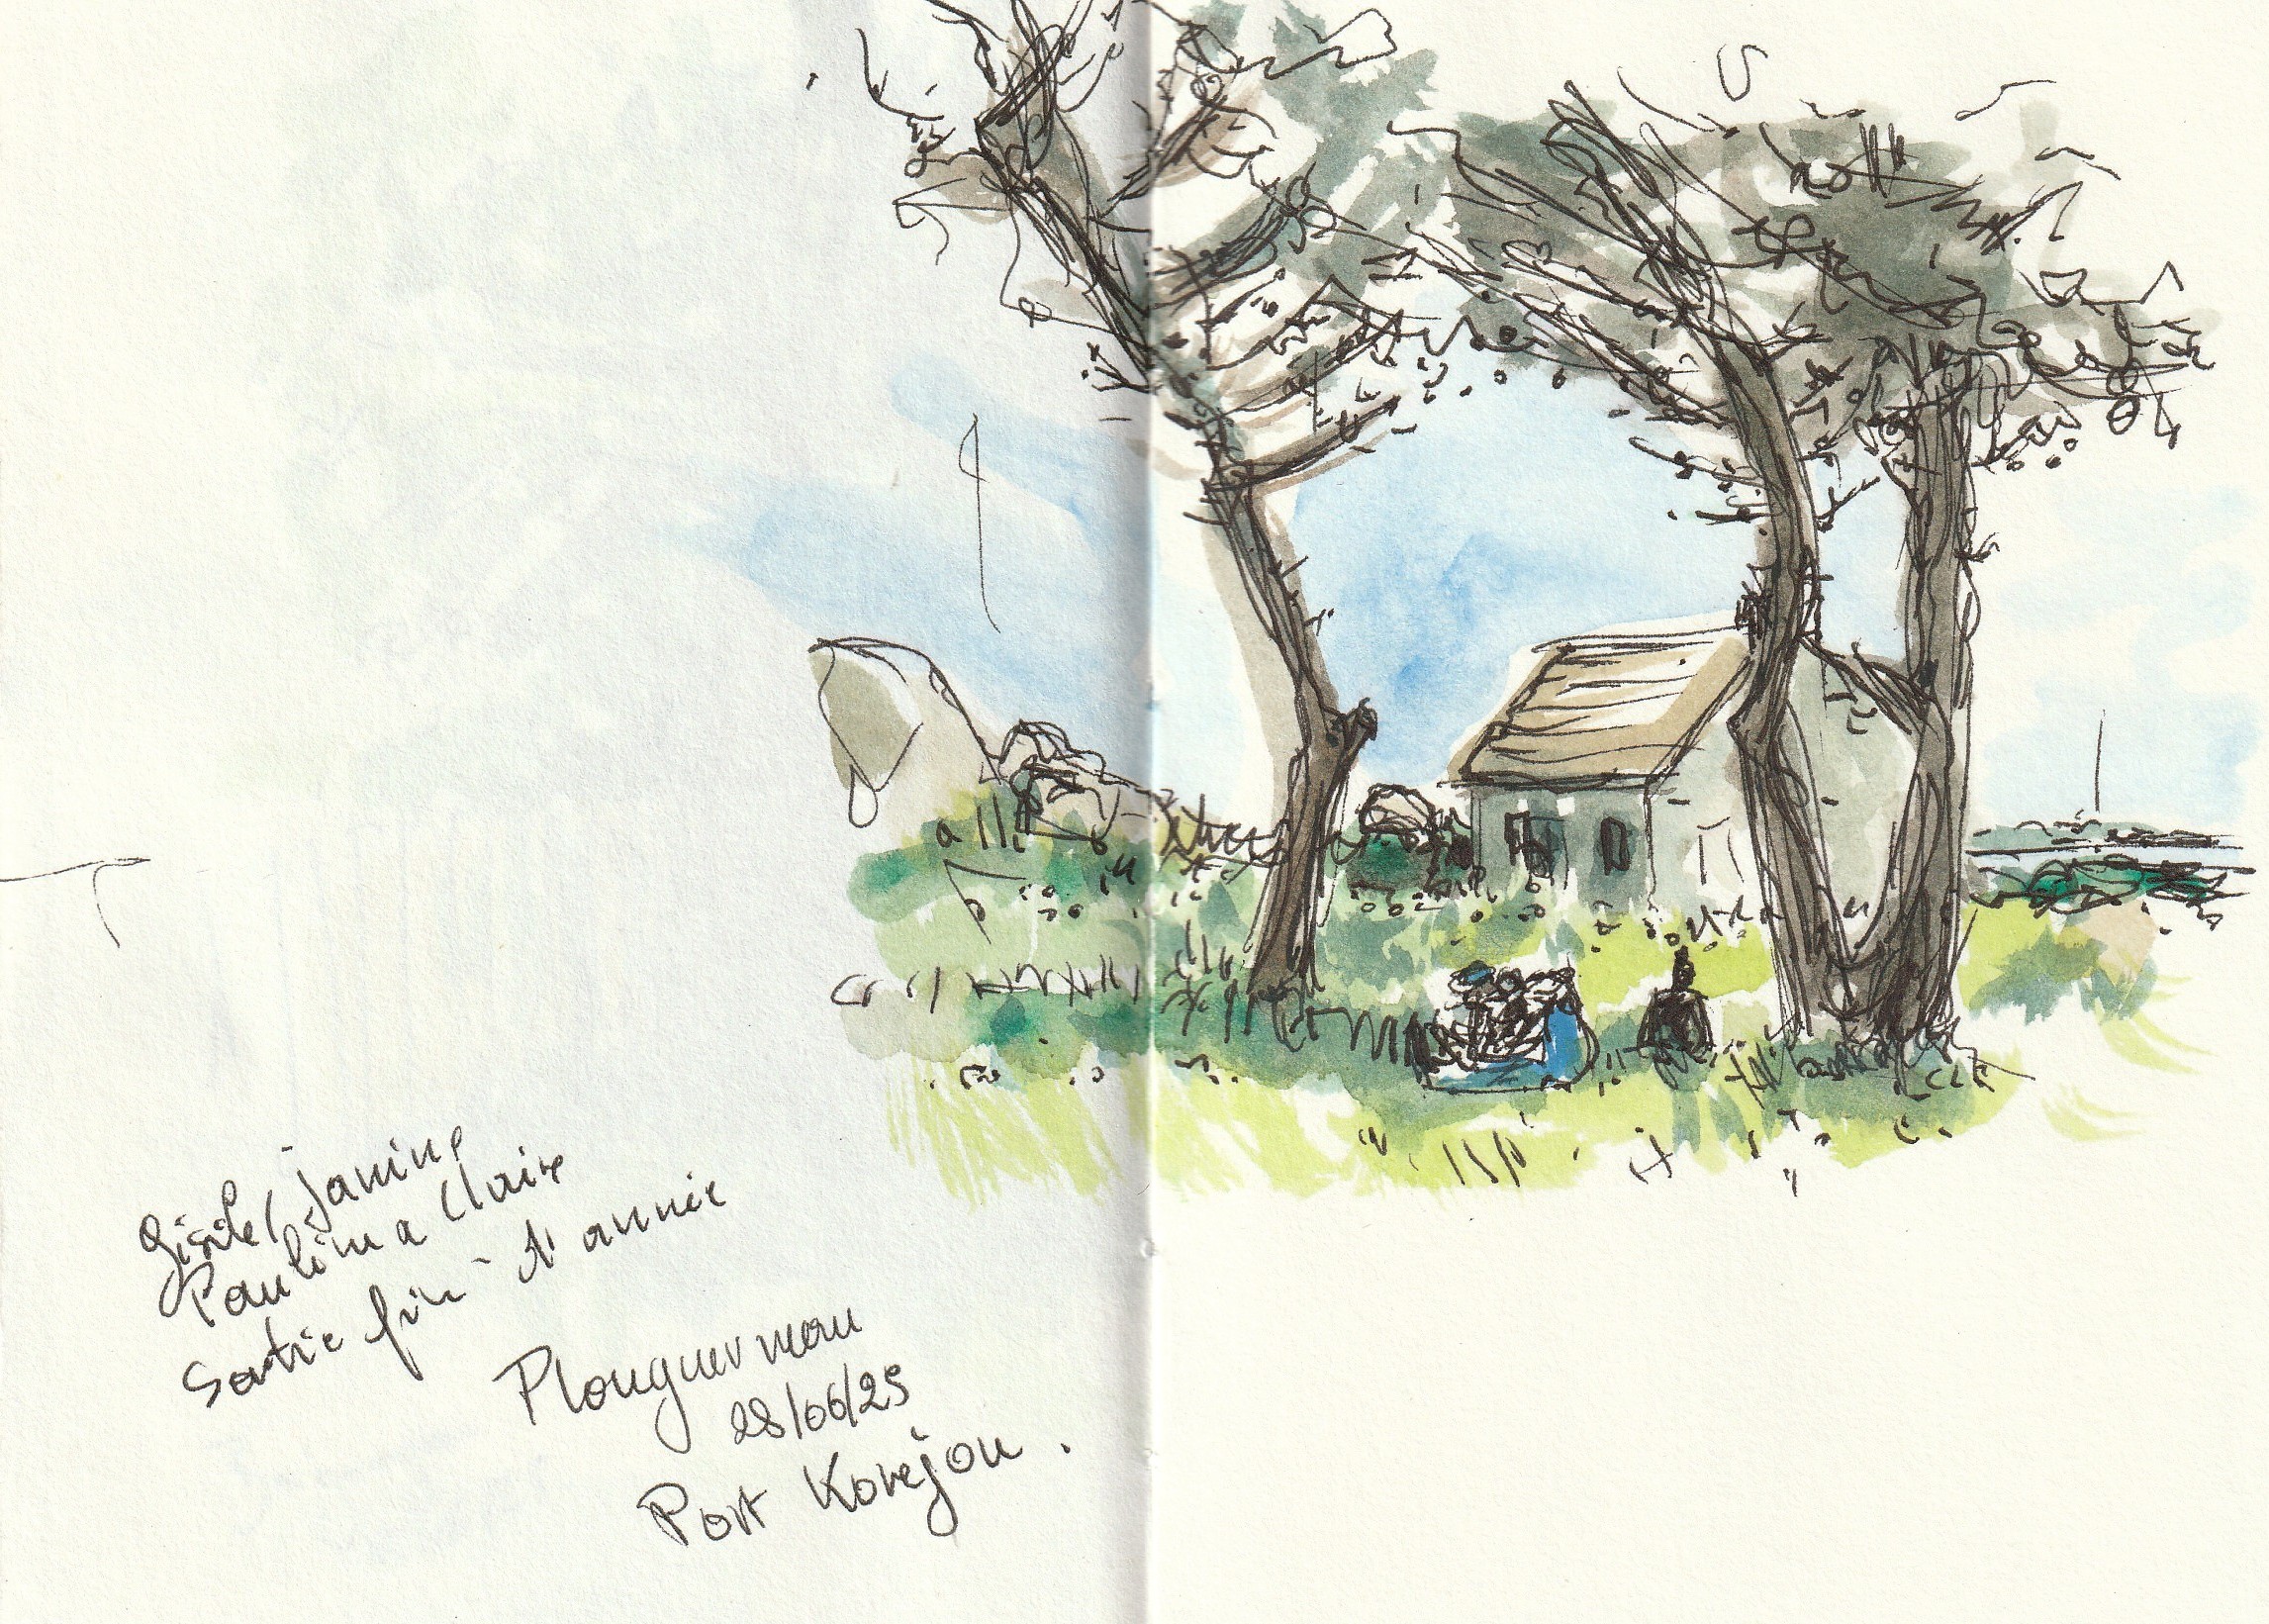 Gisèle, Janine
Pauline a Claire
Sortie fin d'année
Plouguerneau
28/06/25
Port Korejou.